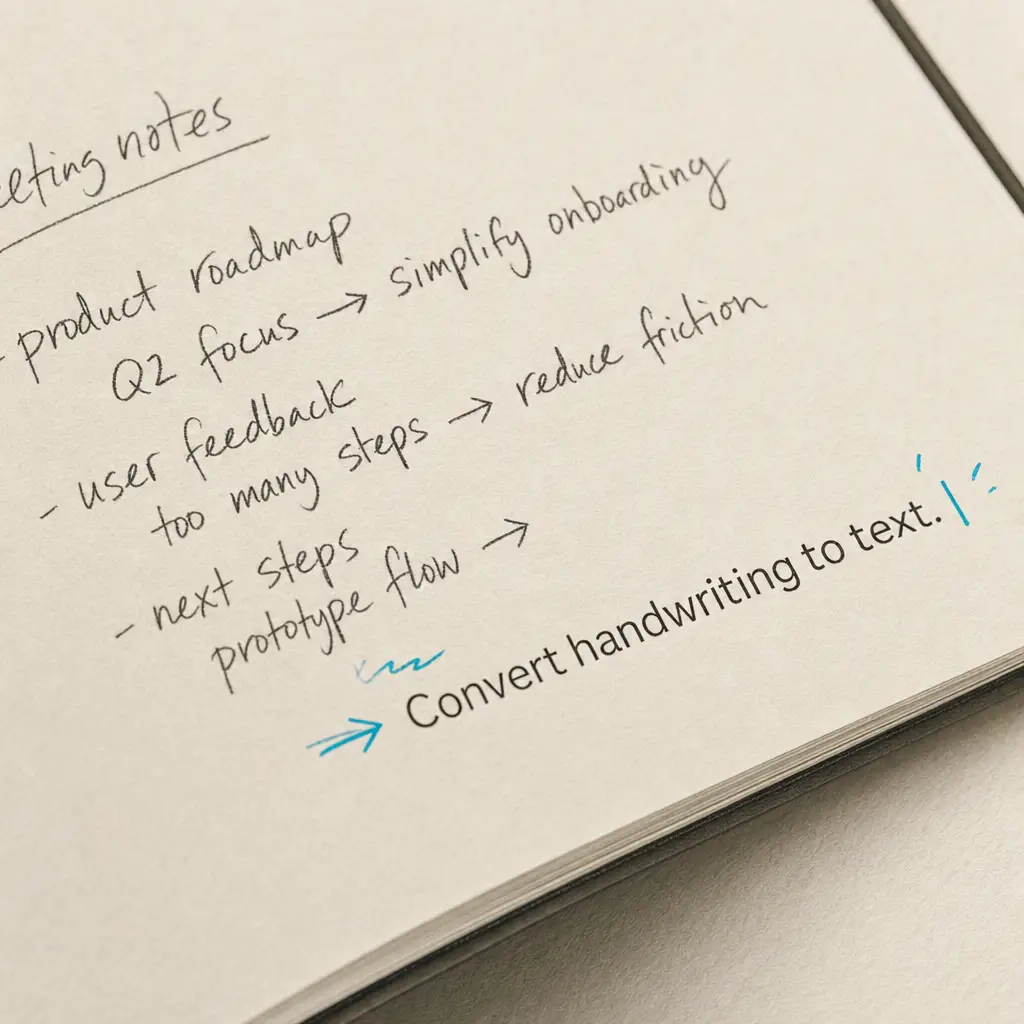 eeting notes
- product roadmap
Q2 focus → simplify onboarding
- user feedback
too many steps → reduce friction
- next steps
prototype flow →
Convert handwriting to text.